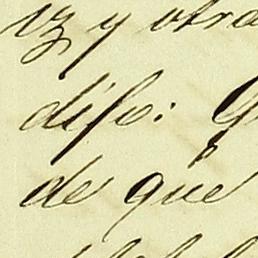 iz y otra
dijo: Q
de que